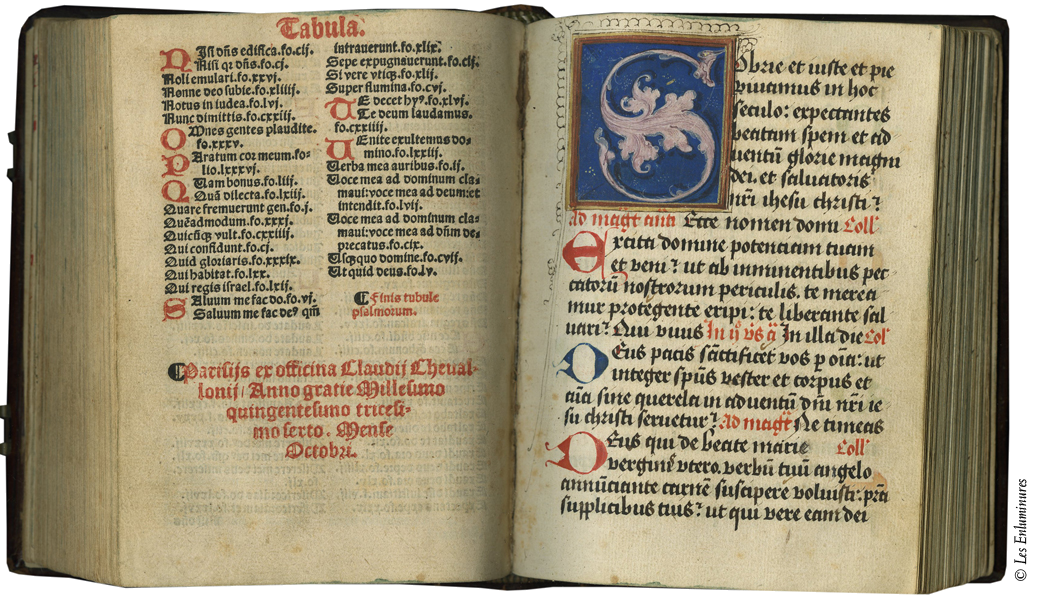 Tabula.
NIsi dñs edifica.fo.cij.
Nisi qꝛ dñs.fo.cj.
Noli emulari.fo.xxvj.
Nonne deo subie.fo.xliiij.
Notus in iudea.fo.lvj.
Nunc dimittis.fo.cxxiij.
OMnes gentes plaudite.
fo.xxxv.
PAratum cor meum.fo-
lio.lxxxvj.
QUam bonus.fo.liij.
Quã dilecta.fo.lxiij.
Quare fremuerunt gen.fo.j.
Quẽadmodum.fo.xxxj.
Quicũqꝫ vult.fo.cxxiiij.
Qui confidunt.fo.cj.
Quid gloriaris.fo.xxxix.
Qui habitat.fo.lxx.
Qui regis israel.fo.lxij.
SAluum me fac do.fo.vj.
Saluum me fac deꝰ qm̃
intrauerunt.fo.xlix.
Sepe expugnauerunt.fo.cij.
Si vere vtiqꝫ.fo.xlij.
Super flumina.fo.cvj.
TE decet hyꝰ.fo.xlvj.
Te deum laudamus.
fo.cxxiiij.
VEnite exultemus do-
mino.fo.lxxij.
Verba mea auribus.fo.ij.
Voce mea ad dominum cla-
maui: voce mea ad deum: et
intendit.fo.lvij.
Voce mea ad dominum cla-
maui: voce mea ad dñm de-
precatus.fo.cix.
Usqꝫquo domine.fo.cvij.
Ut quid deus.fo.lv.
¶ Finis tabule
psalmorum.
¶ Parisijs ex officina Claudij Cheual-
lonij/ Anno gratie Millesimo
quingentesimo tricesi-
mo sexto. Mense
Octobri.
Sobrie et iuste et pie
viuamus in hoc
seculo: expectantes
beatam spem et ad
uentũ glorie magni
dei. et saluatoris
nr̃i ihesu christi?
ad mag̃t an̄a Ecce nomen domi Coll'
Excita domine potenciam tuam
et veni? ut ab imminentibus pec
catorũ nostrorum periculis. te merea
mur protegente eripi: te liberante sal
uari? Qui viuis In ij v̄s ā In illa die Col
Deus pacis sc̃tificet vos p oĩa: ut
integer spũs vester et corpus et
aĩa sine querela in aduentũ dm̃ nr̃i ie
su christi seruetur? ad mag̃t Ne timeas
Deus qui de beate marie Coll'
vergine vtero. verbũ tuũ angelo
annũciante carnẽ suscipere voluisti: pr̃a
supplicibus tuis? ut qui vere eam dei
© Les Enluminures